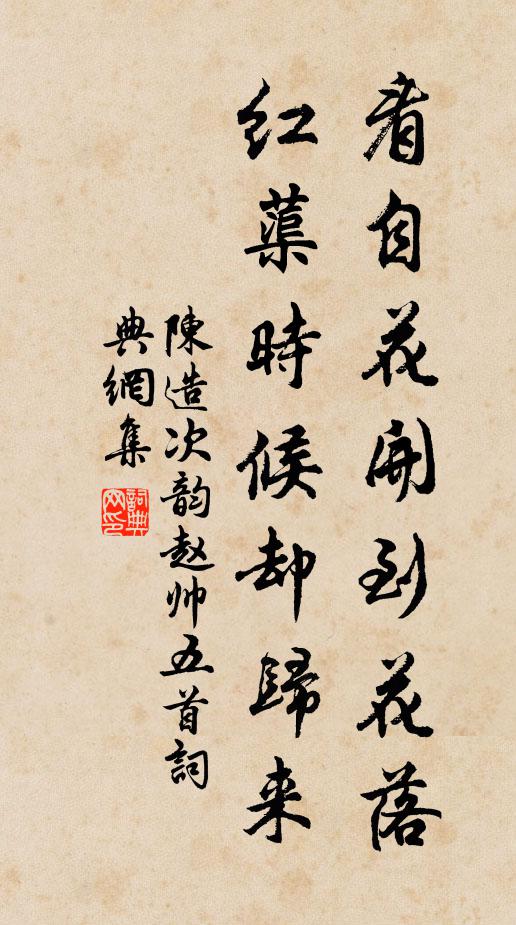 看自花開到花落
红蕖時候却歸来
陳造次韵赵帅五首詞
典網集
詞典
网印